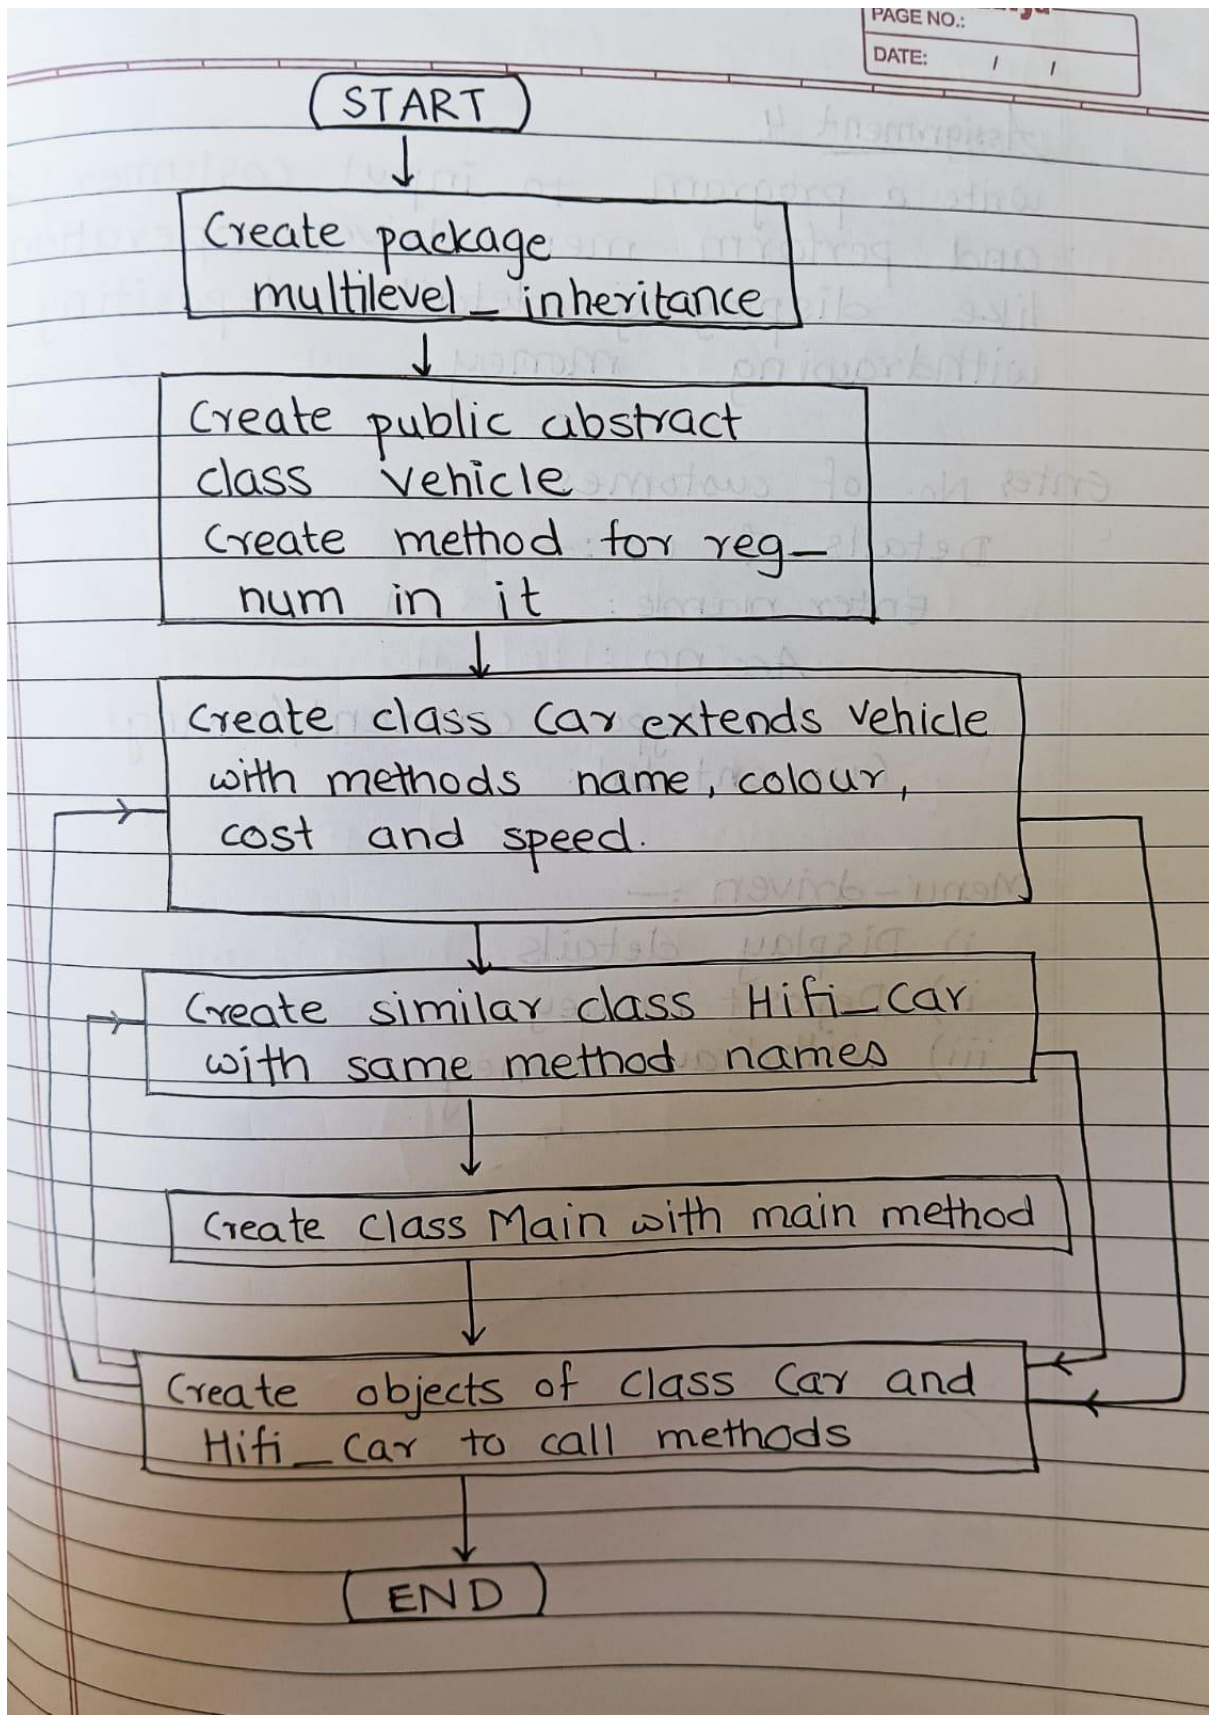 PAGE NO.:
DATE: / /
START
Create package
multilevel_inheritance
Create public abstract
class vehicle
Create method for reg_
num in it
Create class Car extends vehicle
with methods name, colour,
cost and speed.
Create similar class Hifi_Car
with same method names
Create class Main with main method
Create objects of class Car and
Hifi_Car to call methods
END